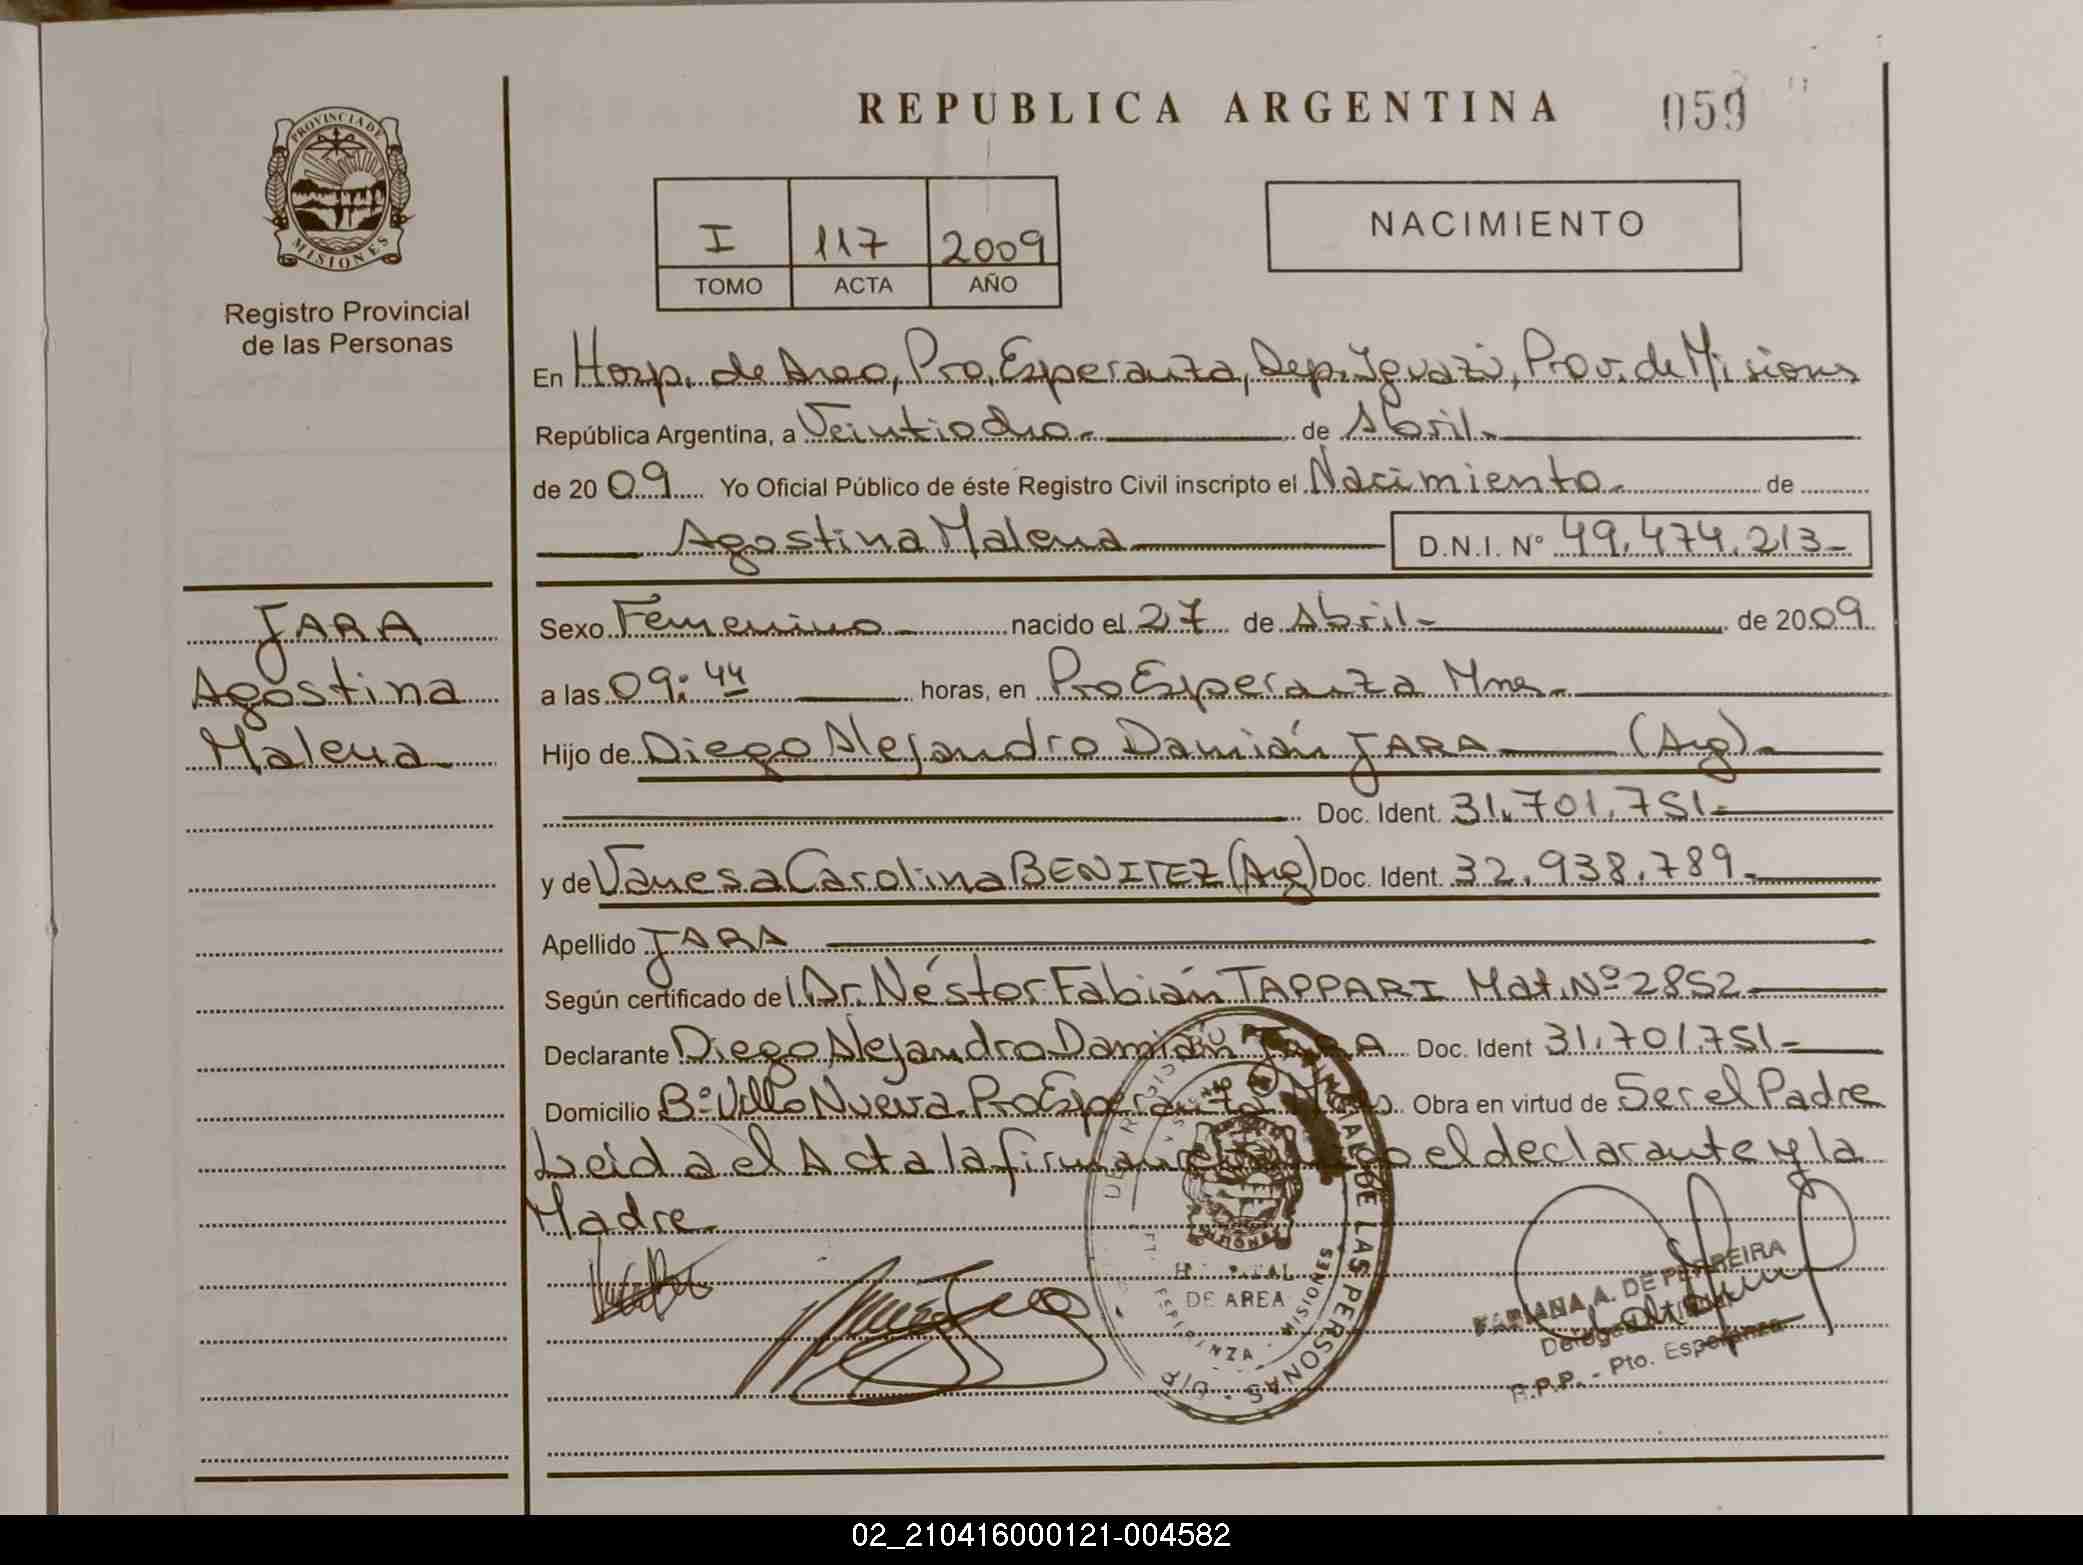 REPUBLICA ARGENTINA
059
PROVINCIA DE
MISIONES
Registro Provincial
de las Personas
I 117 2009
TOMO ACTA AÑO
NACIMIENTO
En Hosp. de Area, Pto. Esperanza, Dep. Iguazú, Prov. de Misiones
República Argentina, a Veintiocho de Abril
de 20 09 Yo Oficial Público de éste Registro Civil inscripto el Nacimiento de
Agostina Malena D.N.I. Nº 49.474.213
JARA
Agostina
Malena
Sexo Femenino nacido el 27 de Abril de 20 09
a las 09:44 horas, en Pto Esperanza Mnes
Hijo de Diego Alejandro Damián JARA (Arg)
Doc. Ident. 31.701.751
y de Vanesa Carolina BENITEZ (Arg) Doc. Ident. 32.938.789
Apellido JARA
Según certificado del Dr. Néstor Fabián TAPPARI Mat. Nº 2852
Declarante Diego Alejandro Damián JARA Doc. Ident 31.701.751
Domicilio Bº Villa Nueva Pto Esperanza Mnes Obra en virtud de Ser el Padre
Leida el Acta la firman el declarante y la
Madre
DE LAS PERSONAS
MISIONES
DE AREA
ESPERANZA - MISIONES
A. DE FERREIRA
R.P.P. - Pto. Esperanza
02_210416000121-004582